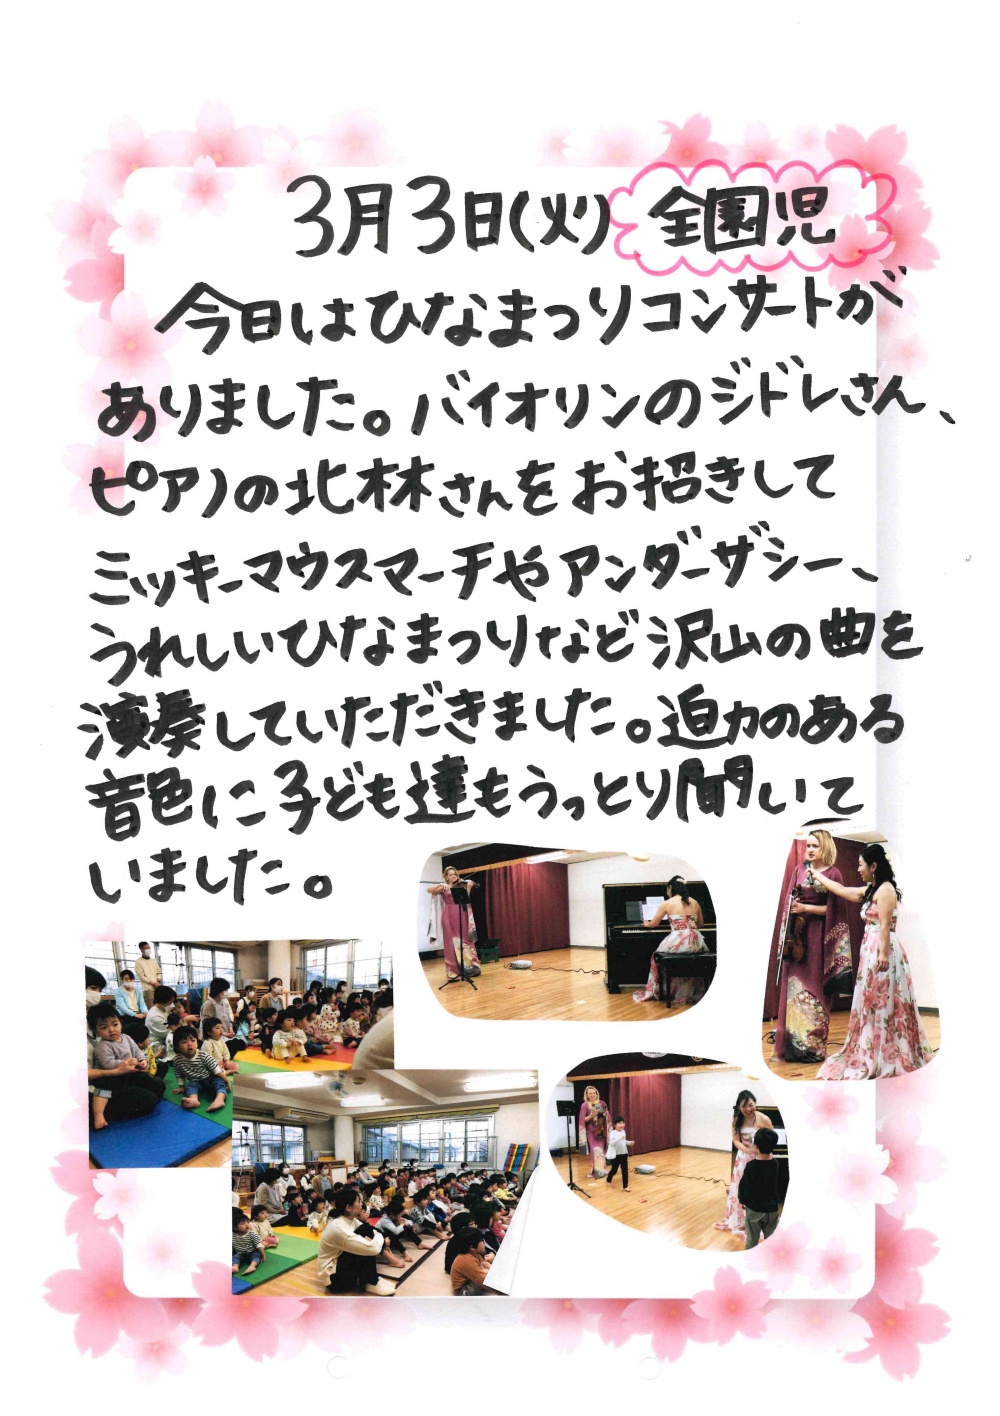 3月3日(火) 全園児
今日はひなまつりコンサートが
ありました。バイオリンのジドレさん、
ピアノの北林さんをお招きして
ミッキーマウスマーチやアンダーザシー、
うれしいひなまつりなど沢山の曲を
演奏していただきました。迫力のある
音色に子ども達もうっとり聞いて
いました。